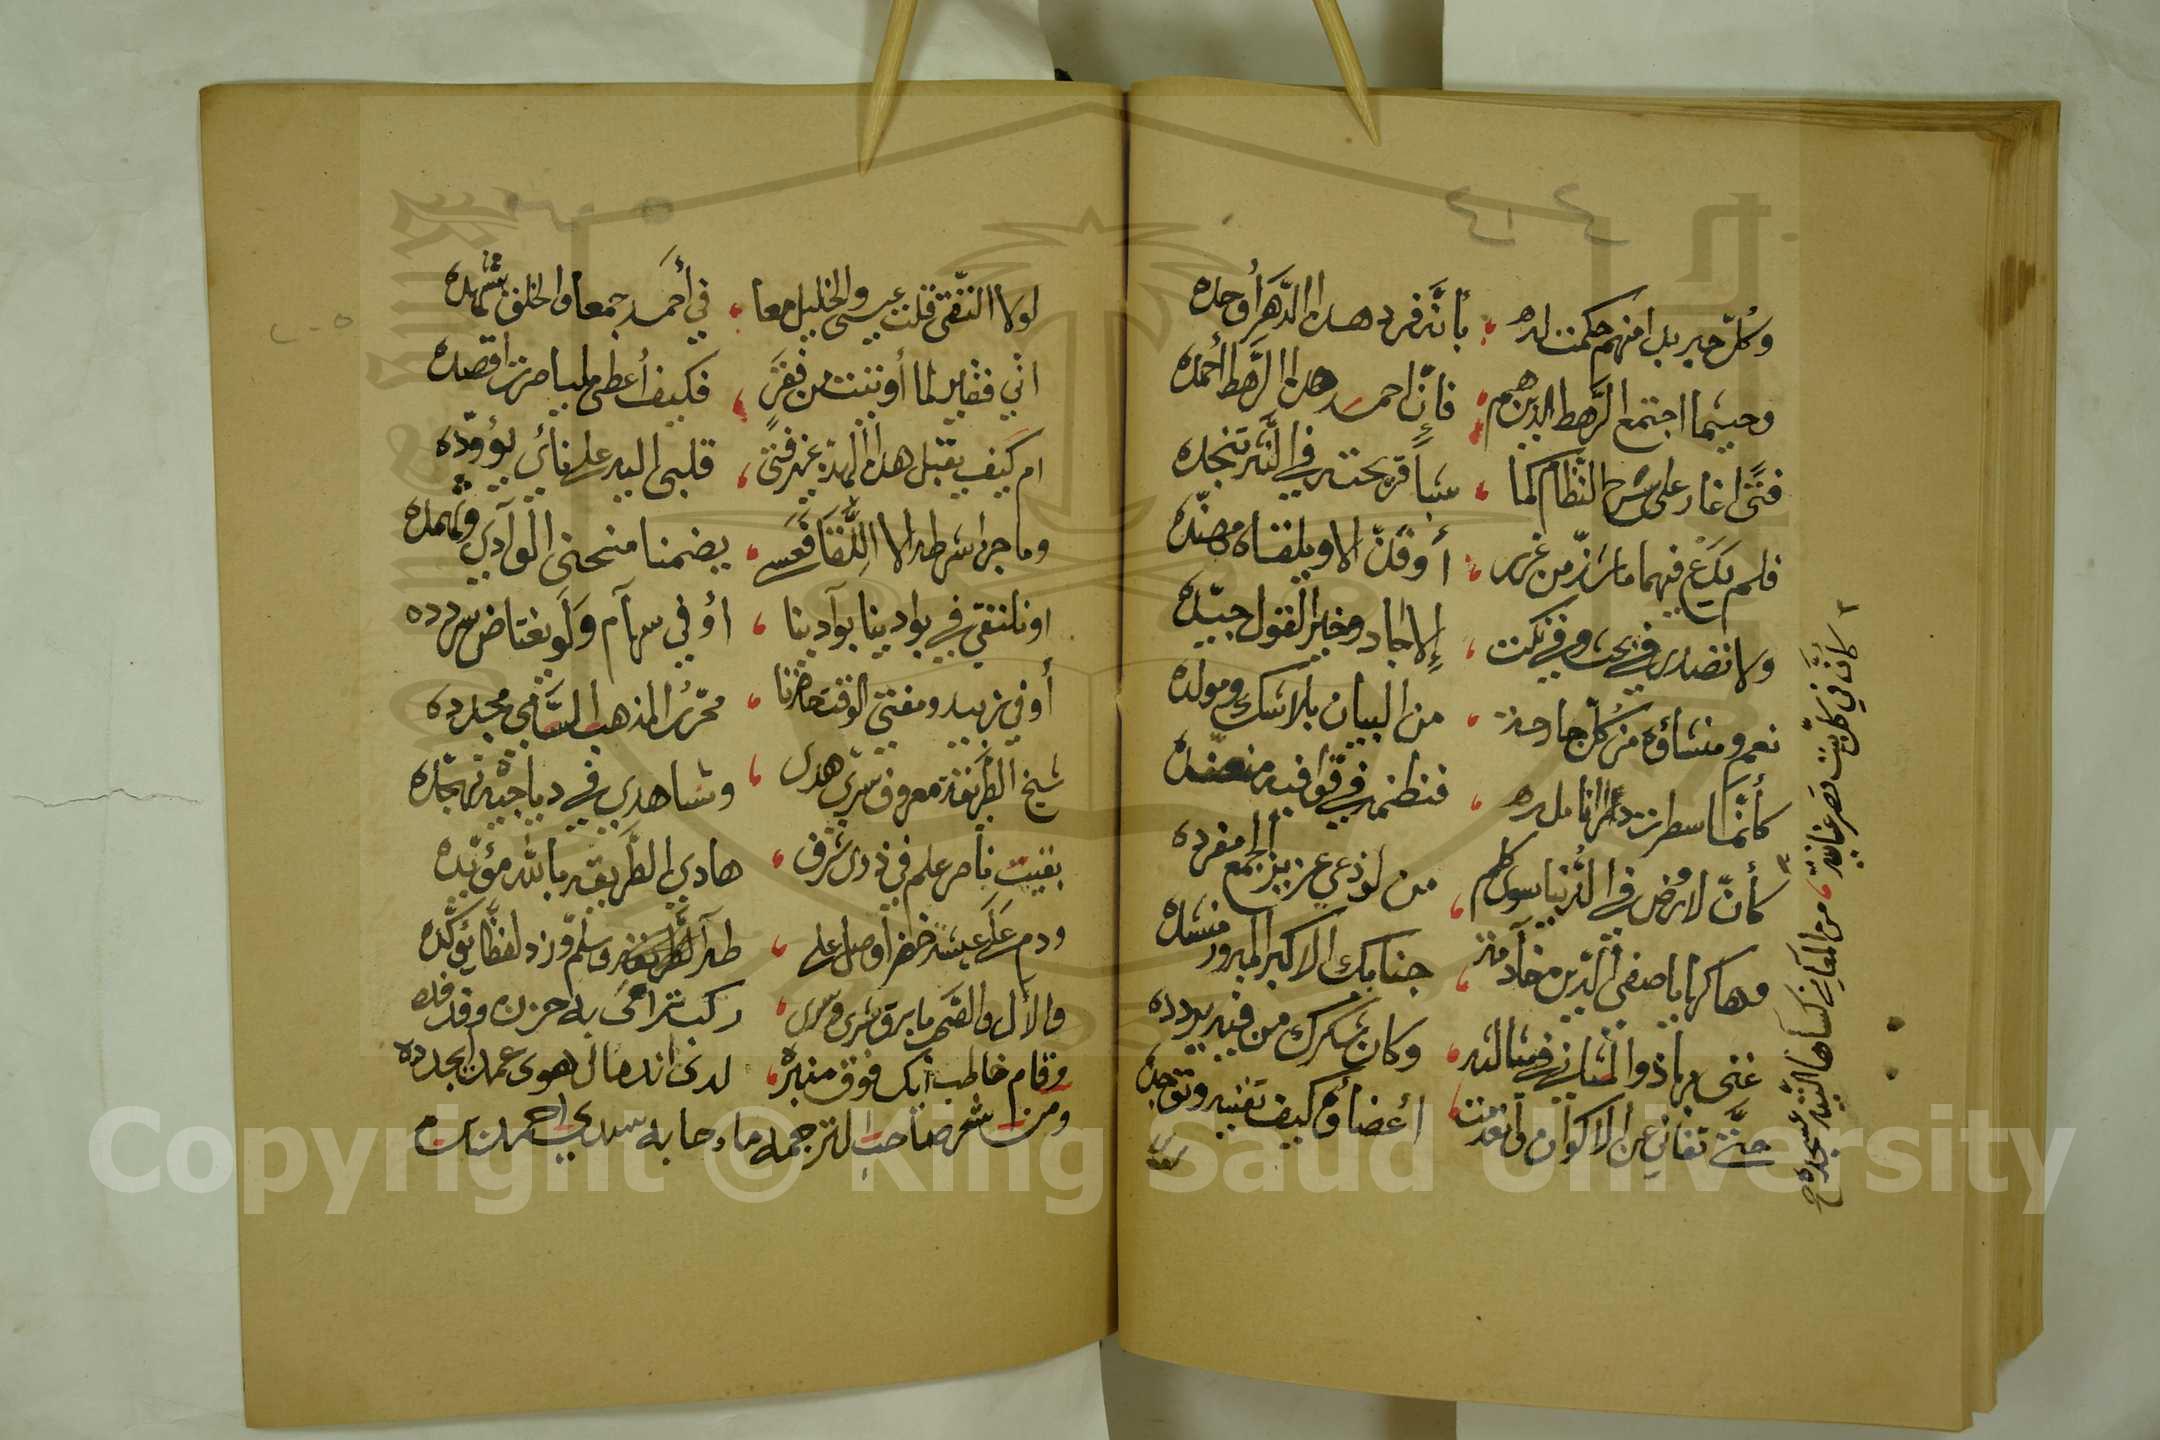 وكل حبر بدا منهم حكمت له بأنه فرد هذا الدهر أوحده
وحيثما اجتمع الرهط الذين هم فإن احمد هذا الرهط أحمده
فتى اغار على شرح النظام كما قريحته في النثر تنجده
فلم يدع فيهما ما شذ من غرر أو قل الا ويلقاه مهنده
ولا تصدى في بحث وفي نكت إلا اجاد وخير القول جيده
نعم ومنشاؤه من كل جارحة من البيان بلا شك ومولده
كأنما سطرت در انامله فنظمه في قوافيه منضده
كأن لا روض في الدنيا سوى كلم من لوذعي عزيز الجمع مفرده
وهاكها يا صفي الدين خادمة جنابك الاكبر المبرور منشده
غنى بها ذو المثاني في شمائله وكان شكرك من فيه يردده
حتى تفاني عن الاكوان وانعدمت أعضاؤه كيف تفنيه وتوجده
كأنما في كل بيت قصر غانية من المعاني كساها التيه عسجده
لولا التقى قلت عيسى والخليل معا في أحمد جمعا والخلق تشهده
اني فقير لما أوتيت من فقر فكيف أعطي مليا صرت اقصده
ام كيف يقبل هذا المدة غير فتى قلبي اليه على نائي يؤوده
وما جرا شرطه الا اللقا فعسى يضمنا منحنى الوادي وثهمده
او نلتقي في بوادينا بوادينا أو في سهام ولو يغتاض سردده
أو في زبيد ومفتي الوقت حاضرنا محرر المذهب السامي مجدده
شيخ الطريقة معروف سري هدى وشاهدي في دياجيه تهجده
بقيت ناصر علم في ذوى شرف هادي الطريقة بالله مؤيده
ودم على عيشة خضرا وصل على طه وسلم وزد لفظا يؤكده
والآل والصحب ما برق شرى وسرى ركب ترامى به حزن وفدفده
وقام خاطب أيك فوق منبره لدى اندمال هوى عهدا يجدده
ومن شعر صاحب الترجمة ما رحابه سيدي احمد